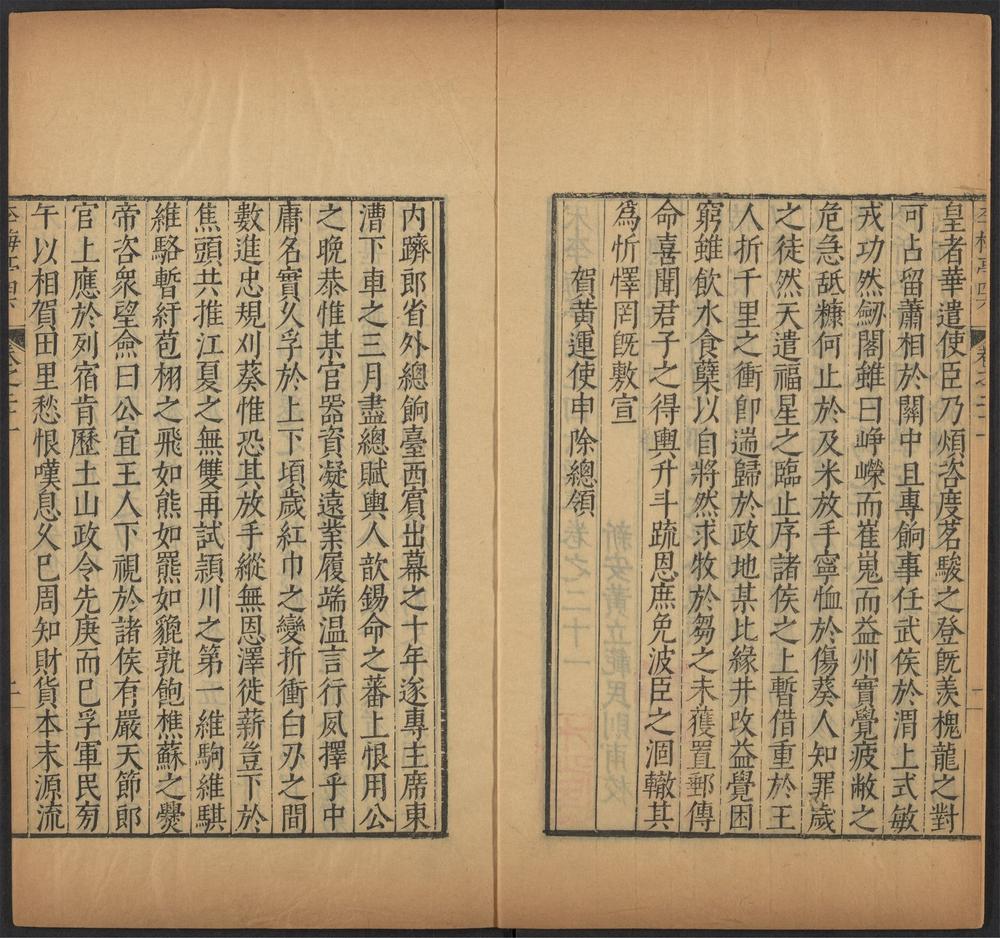 皇者華遣使臣乃煩咨度茗駿之登旣羨槐龍之對
可占留蕭相於關中且專餉事任武侯於渭上式敏
戎功然劒閣雖曰崢嶸而崔嵬而益州實覺疲敝之
危急舐糠何止於及米放手寧恤於傷葵人知罪歲
之徒然天遣福星之臨止序諸侯之上暫借重於王
人折千里之衝卽遄歸於政地某比緣井改益覺困
窮雖飲水食蘗以自將然求牧於芻之未獲置郵傳
命喜聞君子之得輿升斗疏恩庶免波臣之涸轍其
爲忻懌罔旣敷宣
賀黃運使申除總領
內躋郎省外總餉臺西賔出幕之十年遂專主席東
漕下車之三月盡總賦輿人歆錫命之蕃上恨用公
之晚恭惟某官器資凝遠業履端温言行夙擇乎中
庸名實久孚於上下頃歲紅巾之變折衝白刃之間
數進忠規刈葵惟恐其放手縱無恩澤徙薪豈下於
焦頭共推江夏之無雙再試潁川之第一維駒維騏
維駱暫紆苞栩之飛如熊如羆如貔孰飽樵蘇之爨
帝咨衆望僉曰公宜王人下視於諸侯有嚴天節郎
官上應於列宿肯歷土山政令先庚而已孚軍民旁
午以相賀田里愁恨嘆息久已周知財貨本末源流